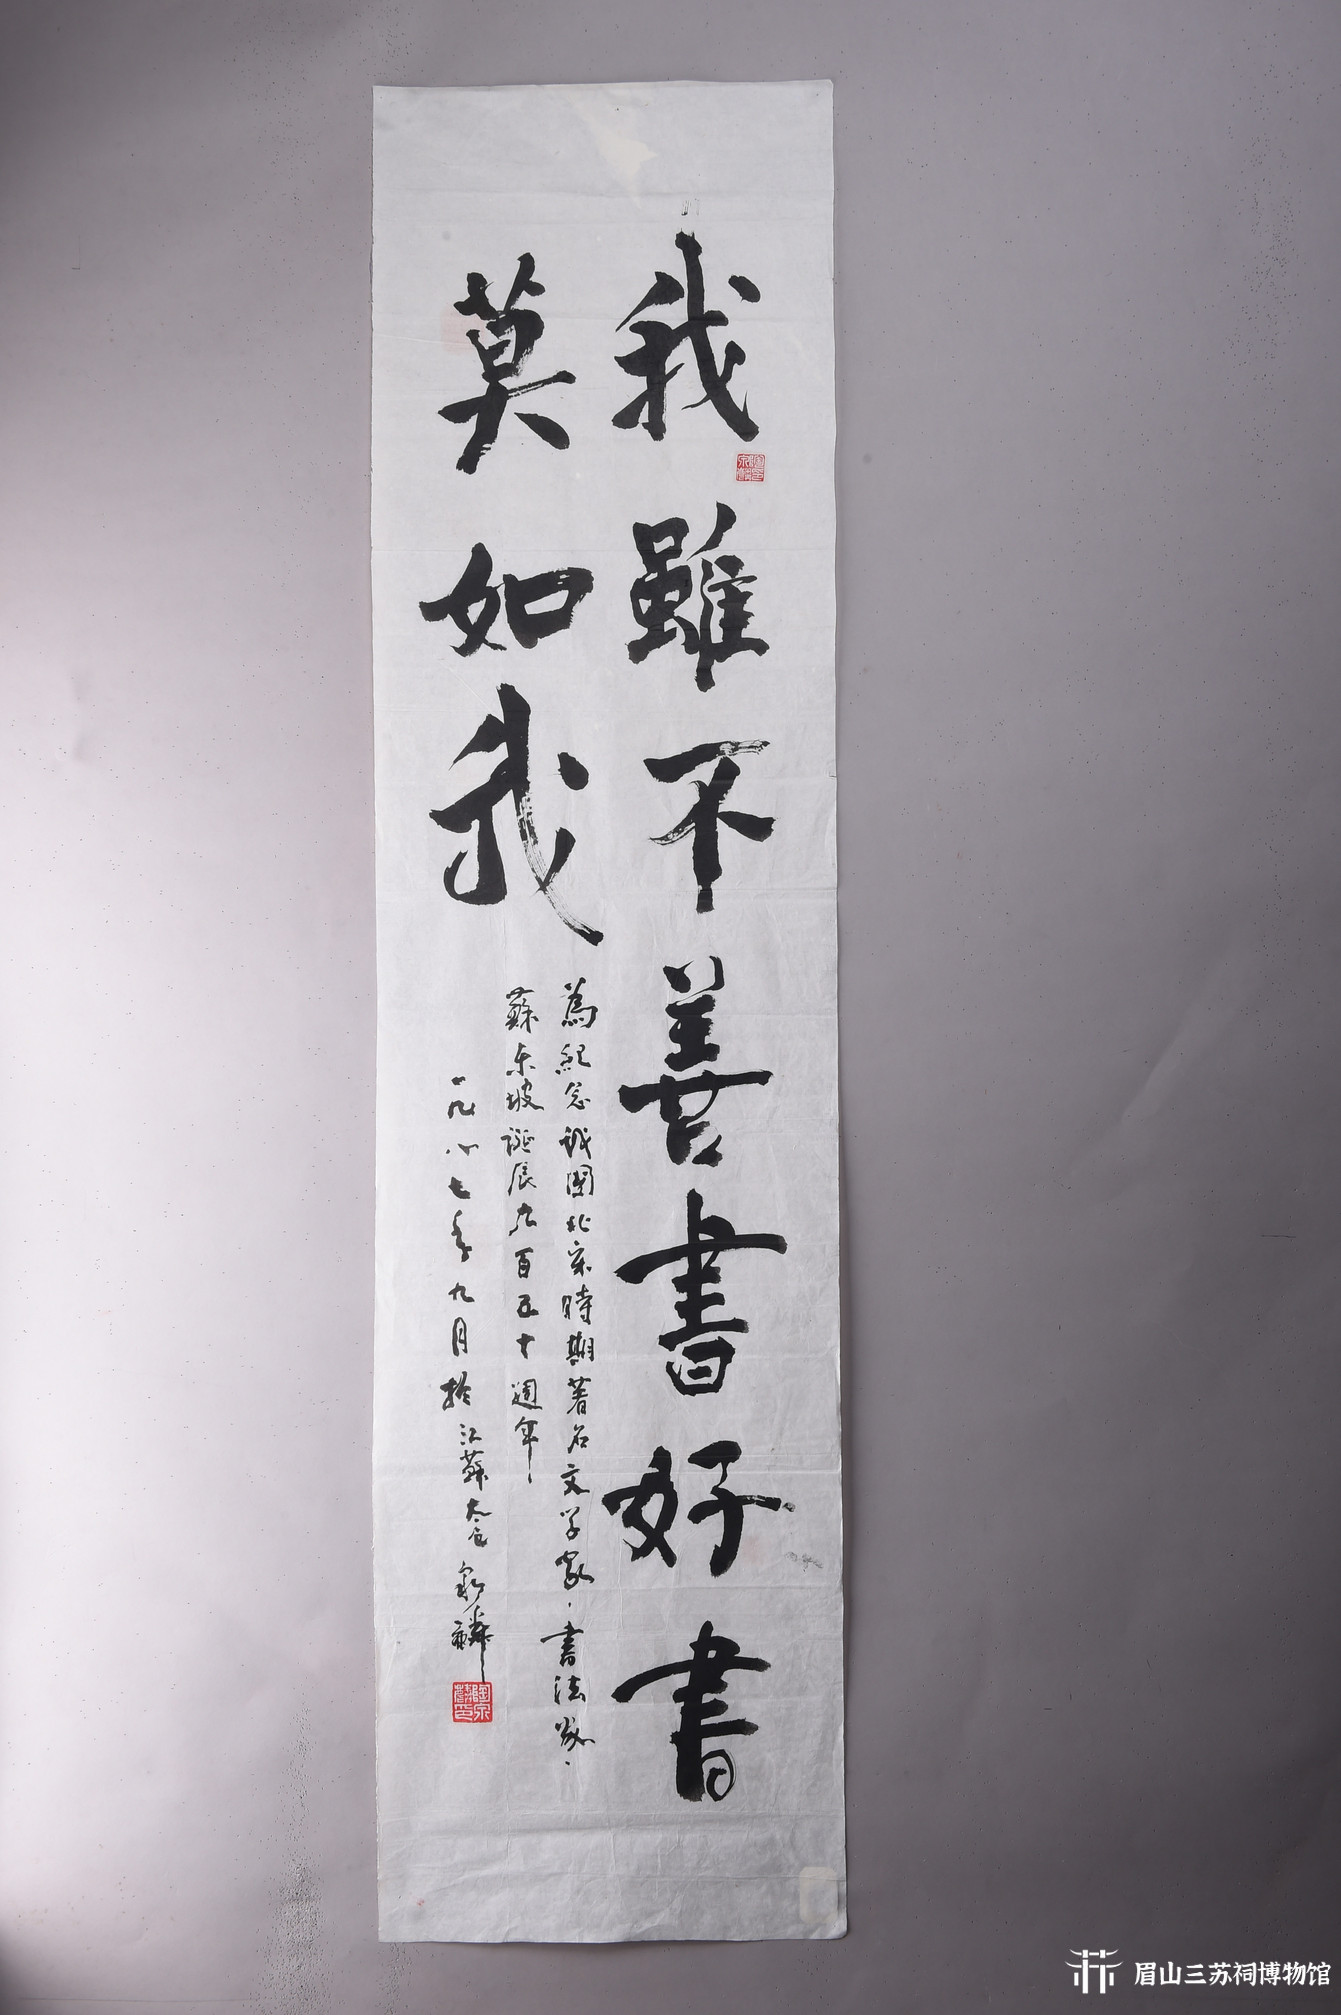 我雖不善書好書
莫如我
為紀念我國北宋時期著名文学家、書法家、
蘇東坡誕辰九百五十週年
一九八七年九月於江蘇太仓泉麟
眉山三苏祠博物馆